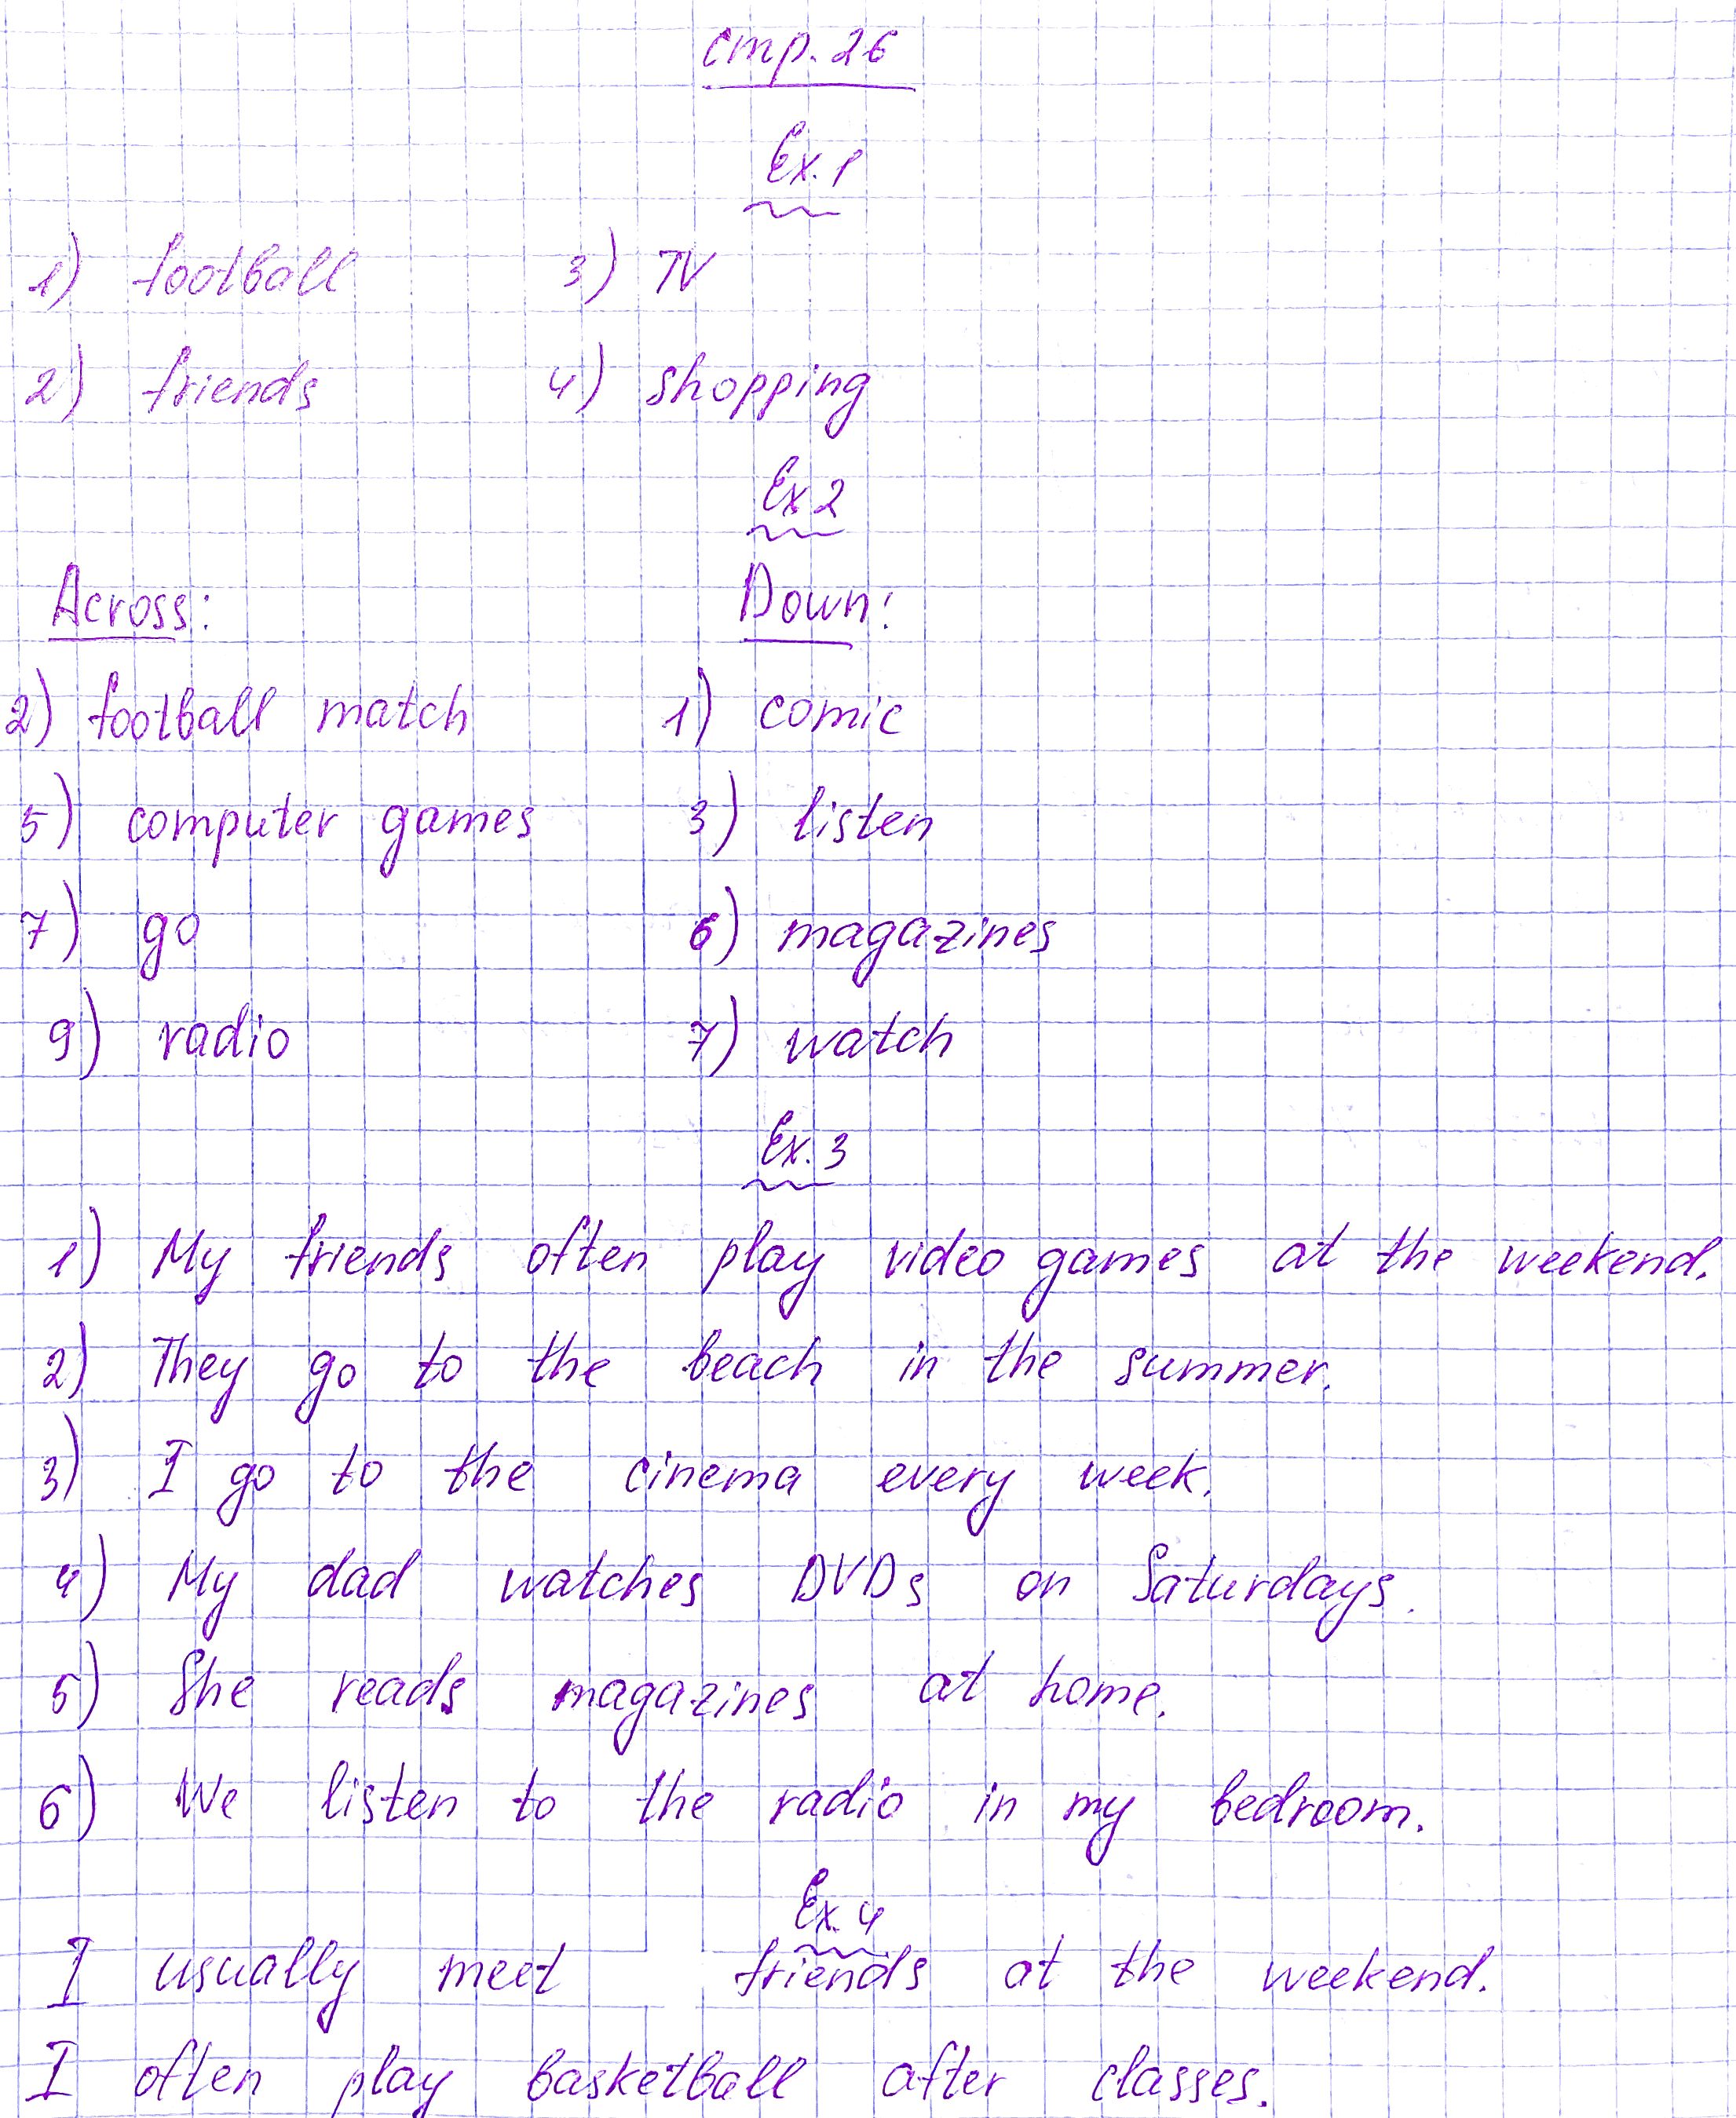 стр. 26
Ex. 1
1) football 3) TV
2) friends 4) shopping
Ex 2
Across: Down:
2) football match 1) comic
5) computer games 3) listen
7) go 6) magazines
9) radio 7) watch
Ex. 3
1) My friends often play video games at the weekend.
2) They go to the beach in the summer.
3) I go to the cinema every week.
4) My dad watches DVDs on Saturdays.
5) She reads magazines at home.
6) We listen to the radio in my bedroom.
Ex. 4
I usually meet friends at the weekend.
I often play basketball after classes.